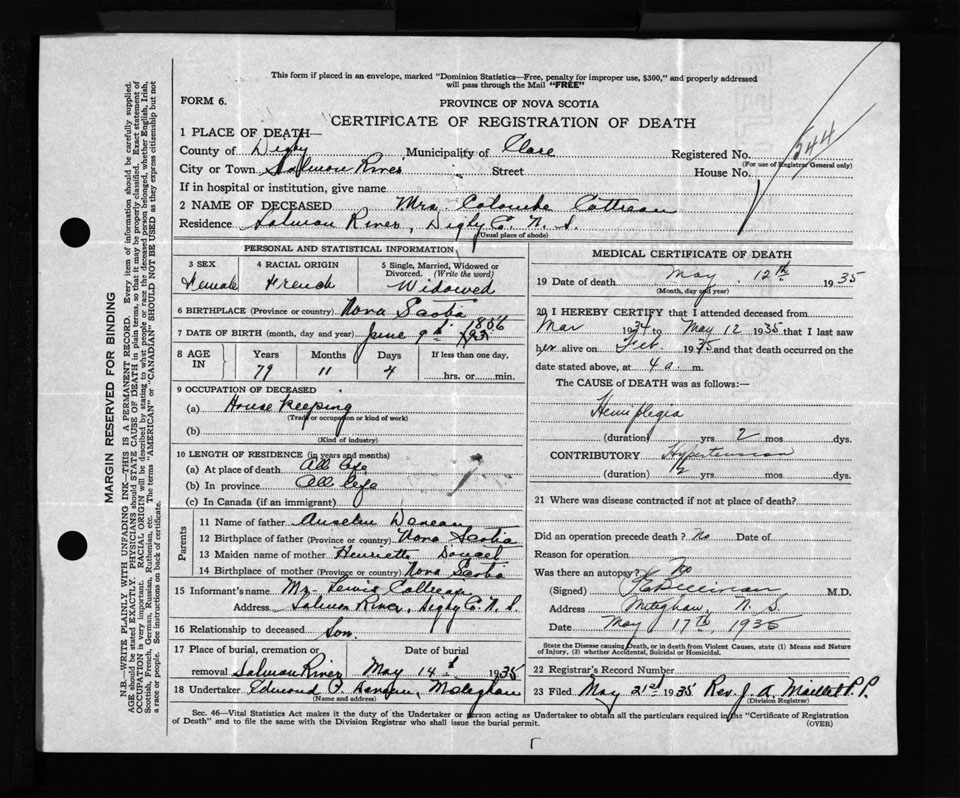 This form if placed in an envelope, marked "Dominion Statistics—Free, penalty for improper use, $300," and properly addressed
will pass through the Mail "FREE"
FORM 6.
PROVINCE OF NOVA SCOTIA
CERTIFICATE OF REGISTRATION OF DEATH
1 PLACE OF DEATH—
County of Digby Municipality of Clare Registered No.
(For use of Registrar General only)
City or Town Salmon River Street House No.
If in hospital or institution, give name
2 NAME OF DECEASED Mrs. Colombe Cottreau
Residence Salmon River, Digby Co. N. S.
(Usual place of abode)
PERSONAL AND STATISTICAL INFORMATION
3 SEX Female
4 RACIAL ORIGIN French
5 Single, Married, Widowed or Divorced. (Write the word) Widowed
6 BIRTHPLACE (Province or country) Nova Scotia
7 DATE OF BIRTH (month, day and year) June 9th 1856
8 AGE IN Years Months Days If less than one day,
79 11 4 hrs. or min.
9 OCCUPATION OF DECEASED
(a) House Keeping
(Trade or occupation or kind of work)
(b)
(Kind of industry)
10 LENGTH OF RESIDENCE (in years and months)
(a) At place of death All Life
(b) In province All Life
(c) In Canada (if an immigrant)
Parents
11 Name of father Anselm
12 Birthplace of father (Province or country) Nova Scotia
13 Maiden name of mother Henriette
14 Birthplace of mother (Province or country) Nova Scotia
15 Informant's name Mr. Lewis Cottreau
Address Salmon River, Digby Co. N. S.
16 Relationship to deceased Son.
17 Place of burial, cremation or Date of burial
removal Salmon River May 14th 1935
18 Undertaker Edmond P. Meteghan
(Name and address)
MEDICAL CERTIFICATE OF DEATH
19 Date of death May 12th 1935
(Month, day and year)
20 I HEREBY CERTIFY that I attended deceased from
Mar 1934 to May 12 1935 that I last saw
her alive on Feb. 1935 and that death occurred on the
date stated above, at 4 a. m.
The CAUSE of DEATH was as follows:—
Hemiplegia
(duration) yrs 2 mos dys.
CONTRIBUTORY Hypertension
(duration) 2 yrs. mos. dys.
21 Where was disease contracted if not at place of death?
Did an operation precede death? No Date of
Reason for operation
Was there an autopsy? No
(Signed) M.D.
Address Meteghan, N. S.
Date May 17th, 1935
State the Disease causing Death, or in death from Violent Causes, state (1) Means and Nature
of Injury, (2) whether Accidental, Suicidal or Homicidal.
22 Registrar's Record Number
23 Filed May 21st 1935 Rev. J. A. Maillet P.P.
(Division Registrar)
Sec. 46—Vital Statistics Act makes it the duty of the Undertaker or person acting as Undertaker to obtain all the particulars required in the "Certificate of Registration
of Death" and to file the same with the Division Registrar who shall issue the burial permit.
(OVER)
MARGIN RESERVED FOR BINDING
N.B.—WRITE PLAINLY WITH UNFADING INK—THIS IS A PERMANENT RECORD. Every item of information should be carefully supplied.
AGE should be stated EXACTLY. PHYSICIANS should STATE CAUSE OF DEATH in plain terms, so that it may be properly classified. Exact statement of
OCCUPATION is very important. RACIAL ORIGIN will be described by stating to what people or race the deceased person belonged, whether English, Irish,
Scottish, French, German, Russian, Ruthenian, etc. The terms "AMERICAN" or "CANADIAN" SHOULD NOT BE USED as they express citizenship but not
a race or people. See instructions on back of certificate.